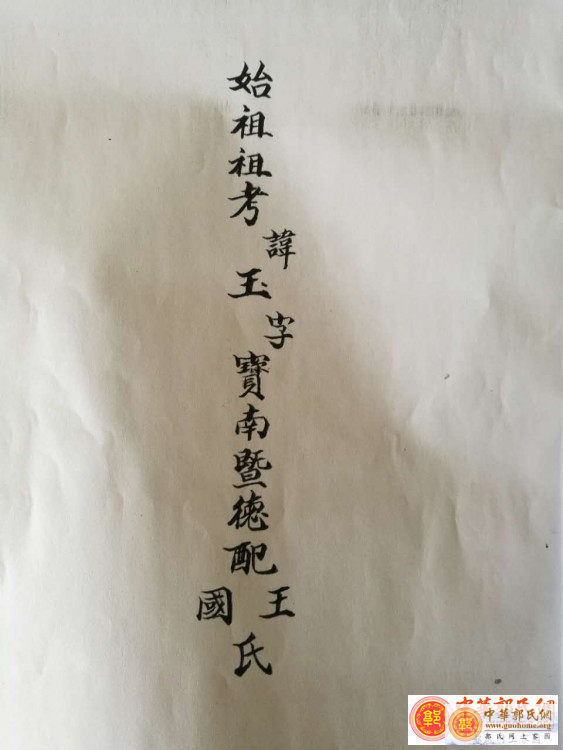 始祖祖考諱玉字寶南暨德配王國氏
中華郭氏網
中華郭氏網
www.guohome.org
郭氏网上家园